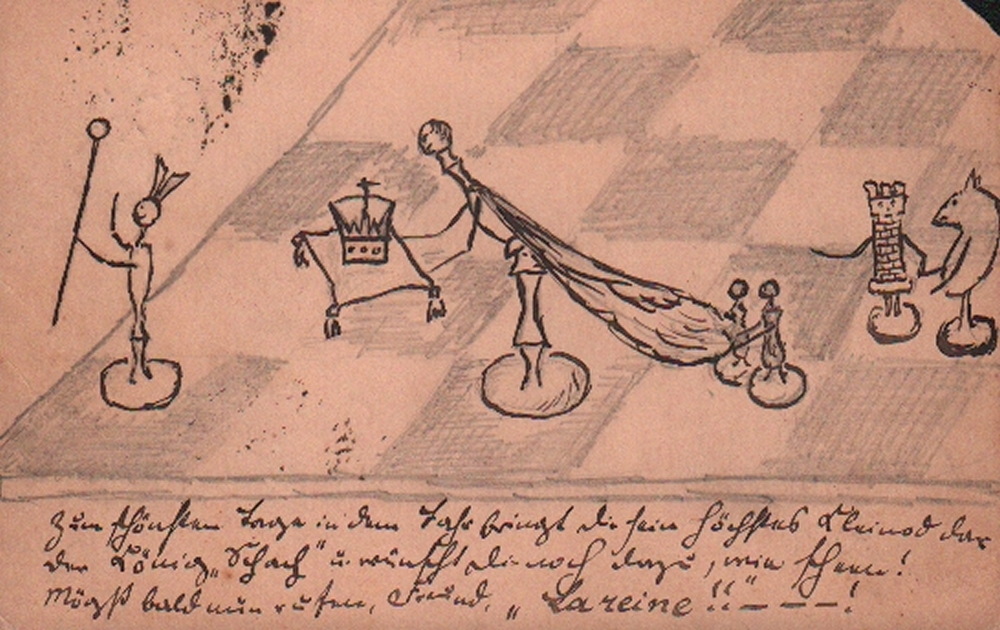 Zum schönsten Tage in dem Jahr bringt dir sein höchstes Kleinod dar
der König „Schach“ u. wünscht dir noch dazu, wie schean!
Mögst bald nun rufen, Freund, „La reine!!“ – – – –!